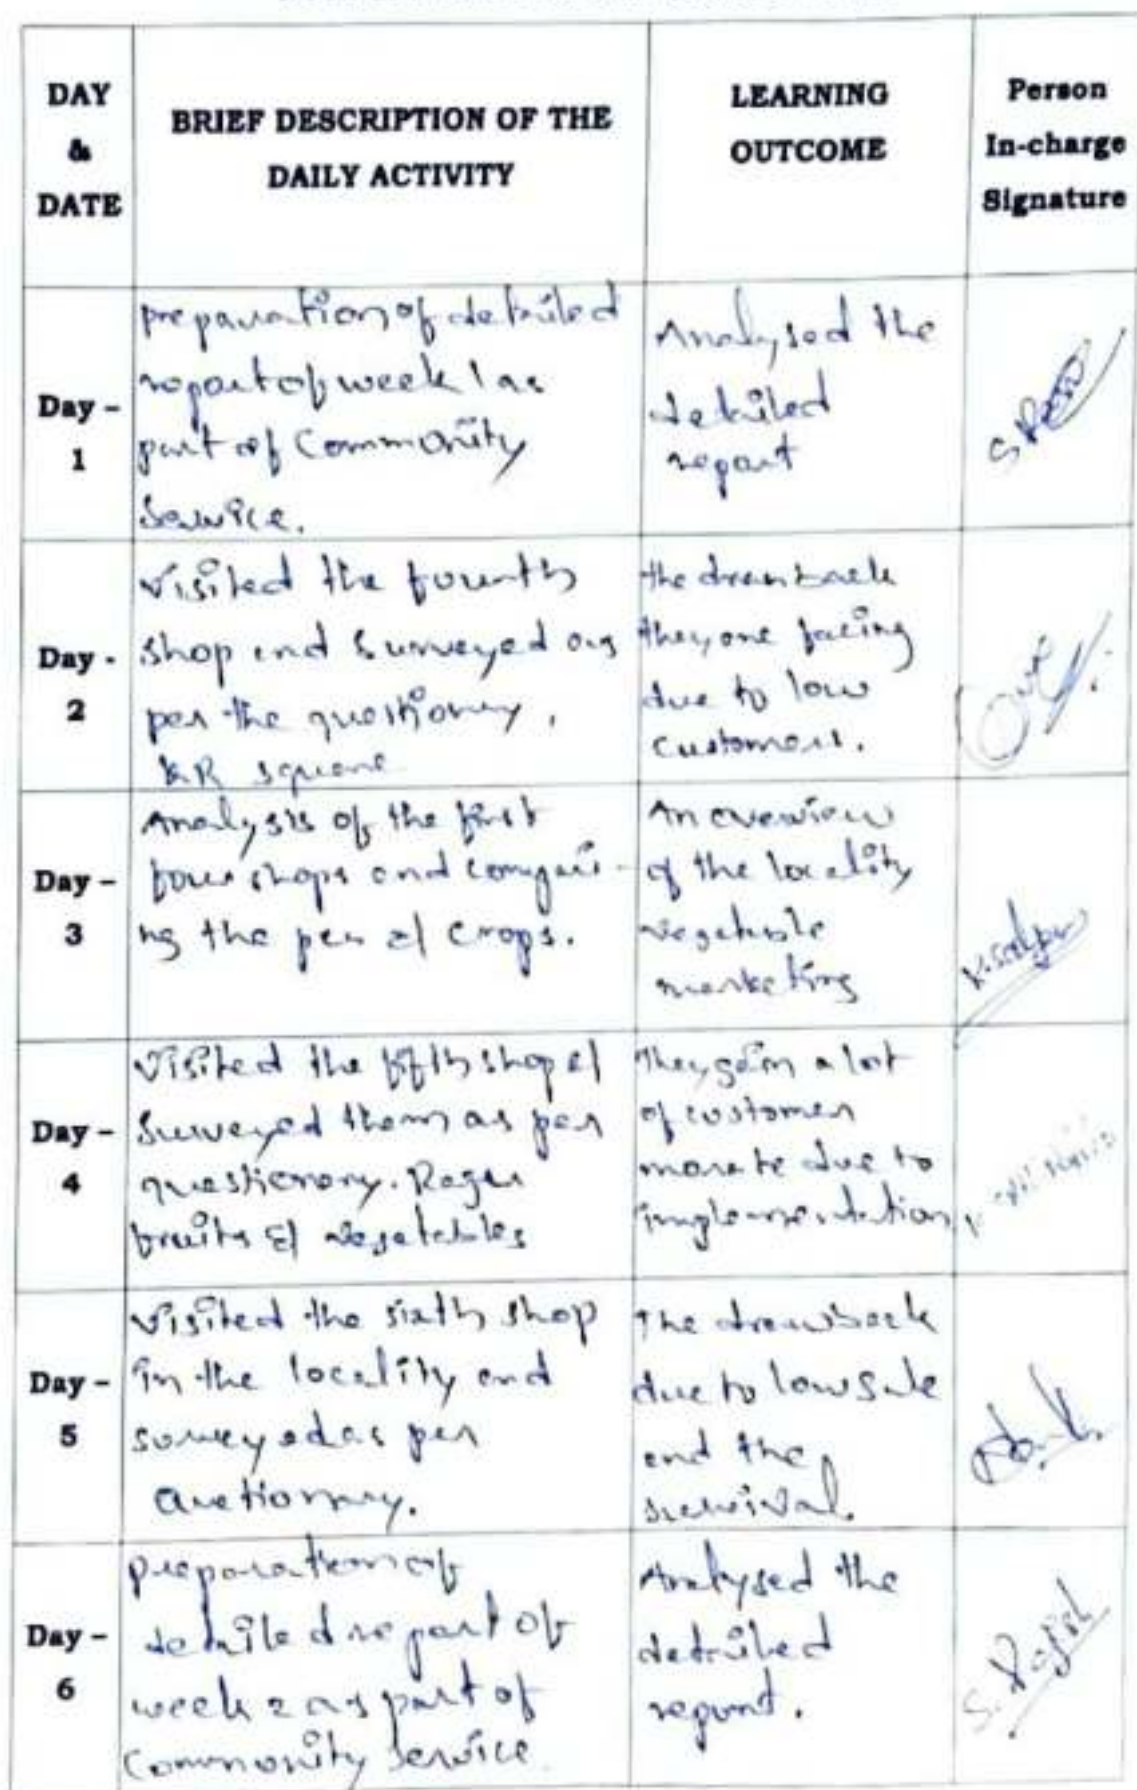 DAY & DATE
BRIEF DESCRIPTION OF THE
DAILY ACTIVITY
LEARNING
OUTCOME
Person
In-charge
Signature
Day – 1
preparation of detailed
report of week 1 as
part of Community
Service.
Analysed the
detailed
report
Day - 2
Visited the fourth
shop and surveyed as
per the questionary,
KR square
the drawback
they are facing
due to low
customers.
Day – 3
Analysis of the first
four shops and compari-
ng the per & crops.
An overview
of the locality
vegetable
marketing
Day – 4
Visited the fifth shop &
surveyed them as per
questionary. Rager
fruits & vegetables
They gain a lot
of customer
due to
implementation
Day – 5
Visited the sixth shop
in the locality and
surveyed as per
The drawback
due to low sale
and the
survival.
Day – 6
preparation of
detailed report of
week 2 as part of
Community Service.
Analysed the
detailed
report.
S. Rajesh